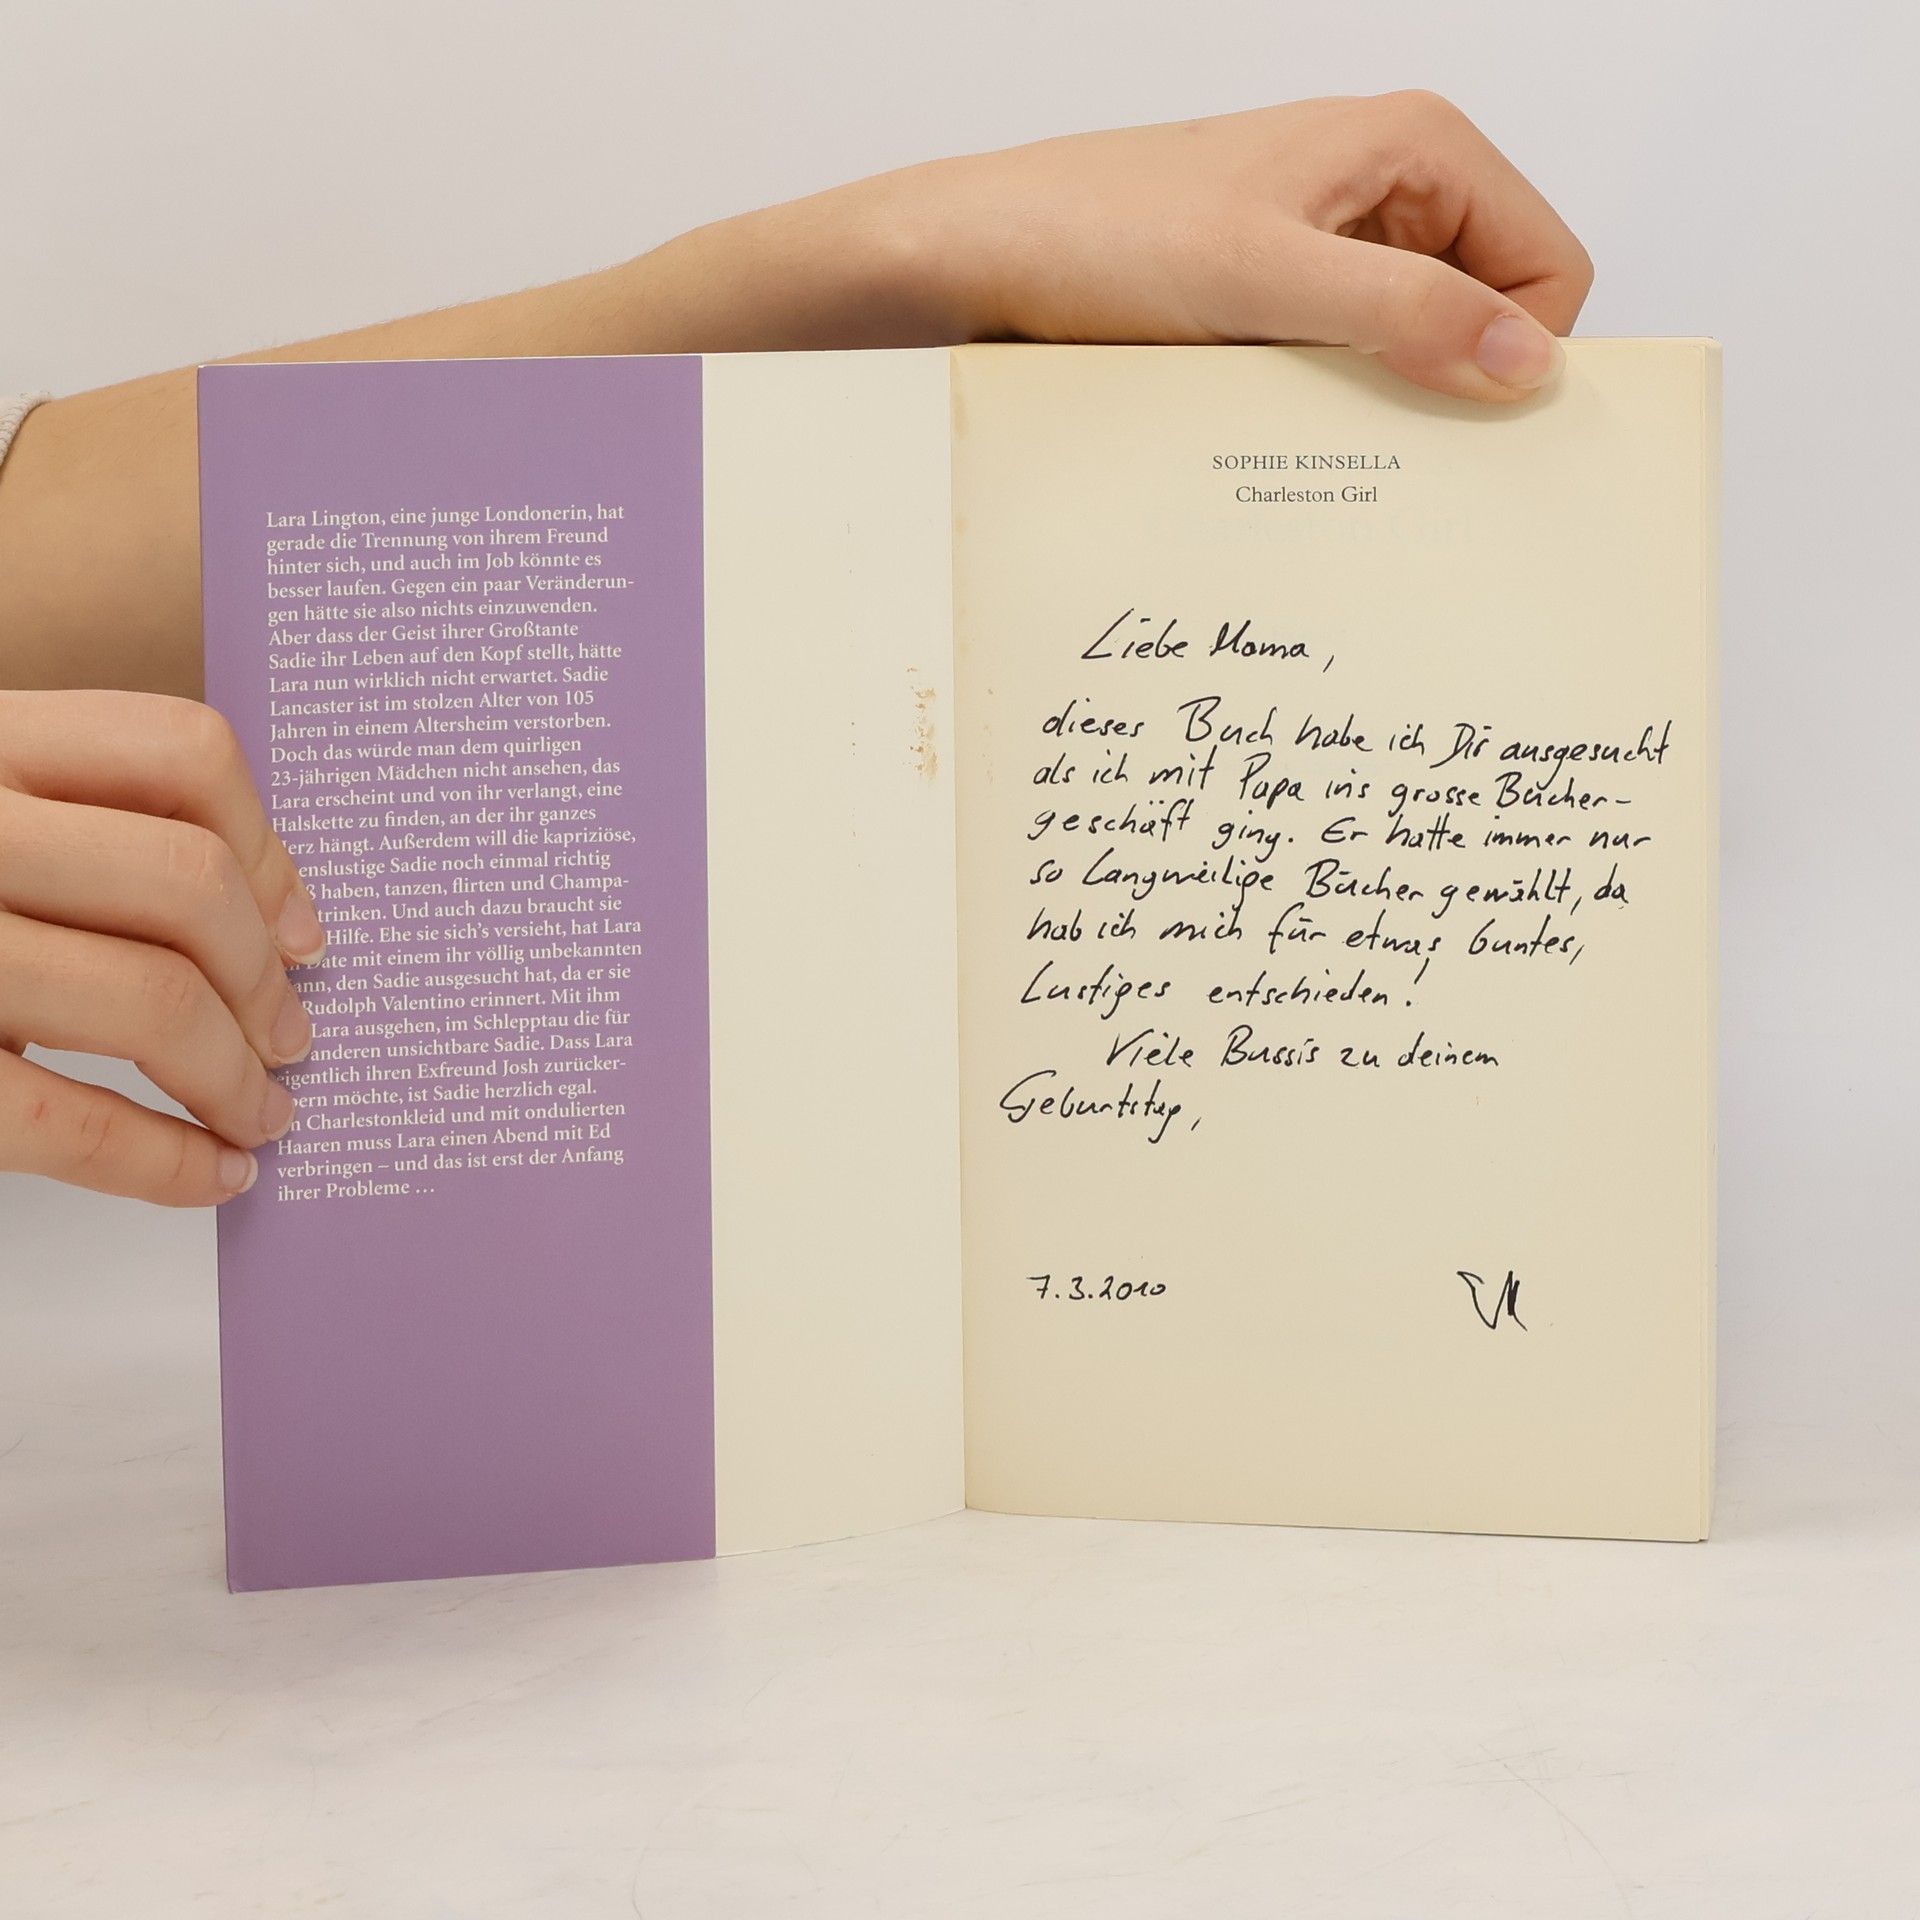 Lara Lington, eine junge Londonerin, hat
gerade die Trennung von ihrem Freund
hinter sich, und auch im Job könnte es
besser laufen. Gegen ein paar Veränderun-
gen hätte sie also nichts einzuwenden.
Aber dass der Geist ihrer Großtante
Sadie ihr Leben auf den Kopf stellt, hätte
Lara nun wirklich nicht erwartet. Sadie
Lancaster ist im stolzen Alter von 105
Jahren in einem Altersheim verstorben.
Doch das würde man dem quirligen
23-jährigen Mädchen nicht ansehen, das
Lara erscheint und von ihr verlangt, eine
Halskette zu finden, an der ihr ganzes
erz hängt. Außerdem will die kapriziöse,
enslustige Sadie noch einmal richtig
ß haben, tanzen, flirten und Champa-
trinken. Und auch dazu braucht sie
Hilfe. Ehe sie sich's versieht, hat Lara
Date mit einem ihr völlig unbekannten
ann, den Sadie ausgesucht hat, da er sie
Rudolph Valentino erinnert. Mit ihm
Lara ausgehen, im Schlepptau die für
anderen unsichtbare Sadie. Dass Lara
eigentlich ihren Exfreund Josh zurücker-
bern möchte, ist Sadie herzlich egal.
n Charlestonkleid und mit ondulierten
Haaren muss Lara einen Abend mit Ed
verbringen – und das ist erst der Anfang
ihrer Probleme …
SOPHIE KINSELLA
Charleston Girl
Liebe Mama,
dieses Buch habe ich Dir ausgesucht
als ich mit Papa ins grosse Bücher-
geschäft ging. Er hatte immer nur
so Langweilige Bücher gewählt, da
hab ich mich für etwas buntes,
Lustiges entschieden!
Viele Bussis zu deinem
Geburtstag,
7.3.2010